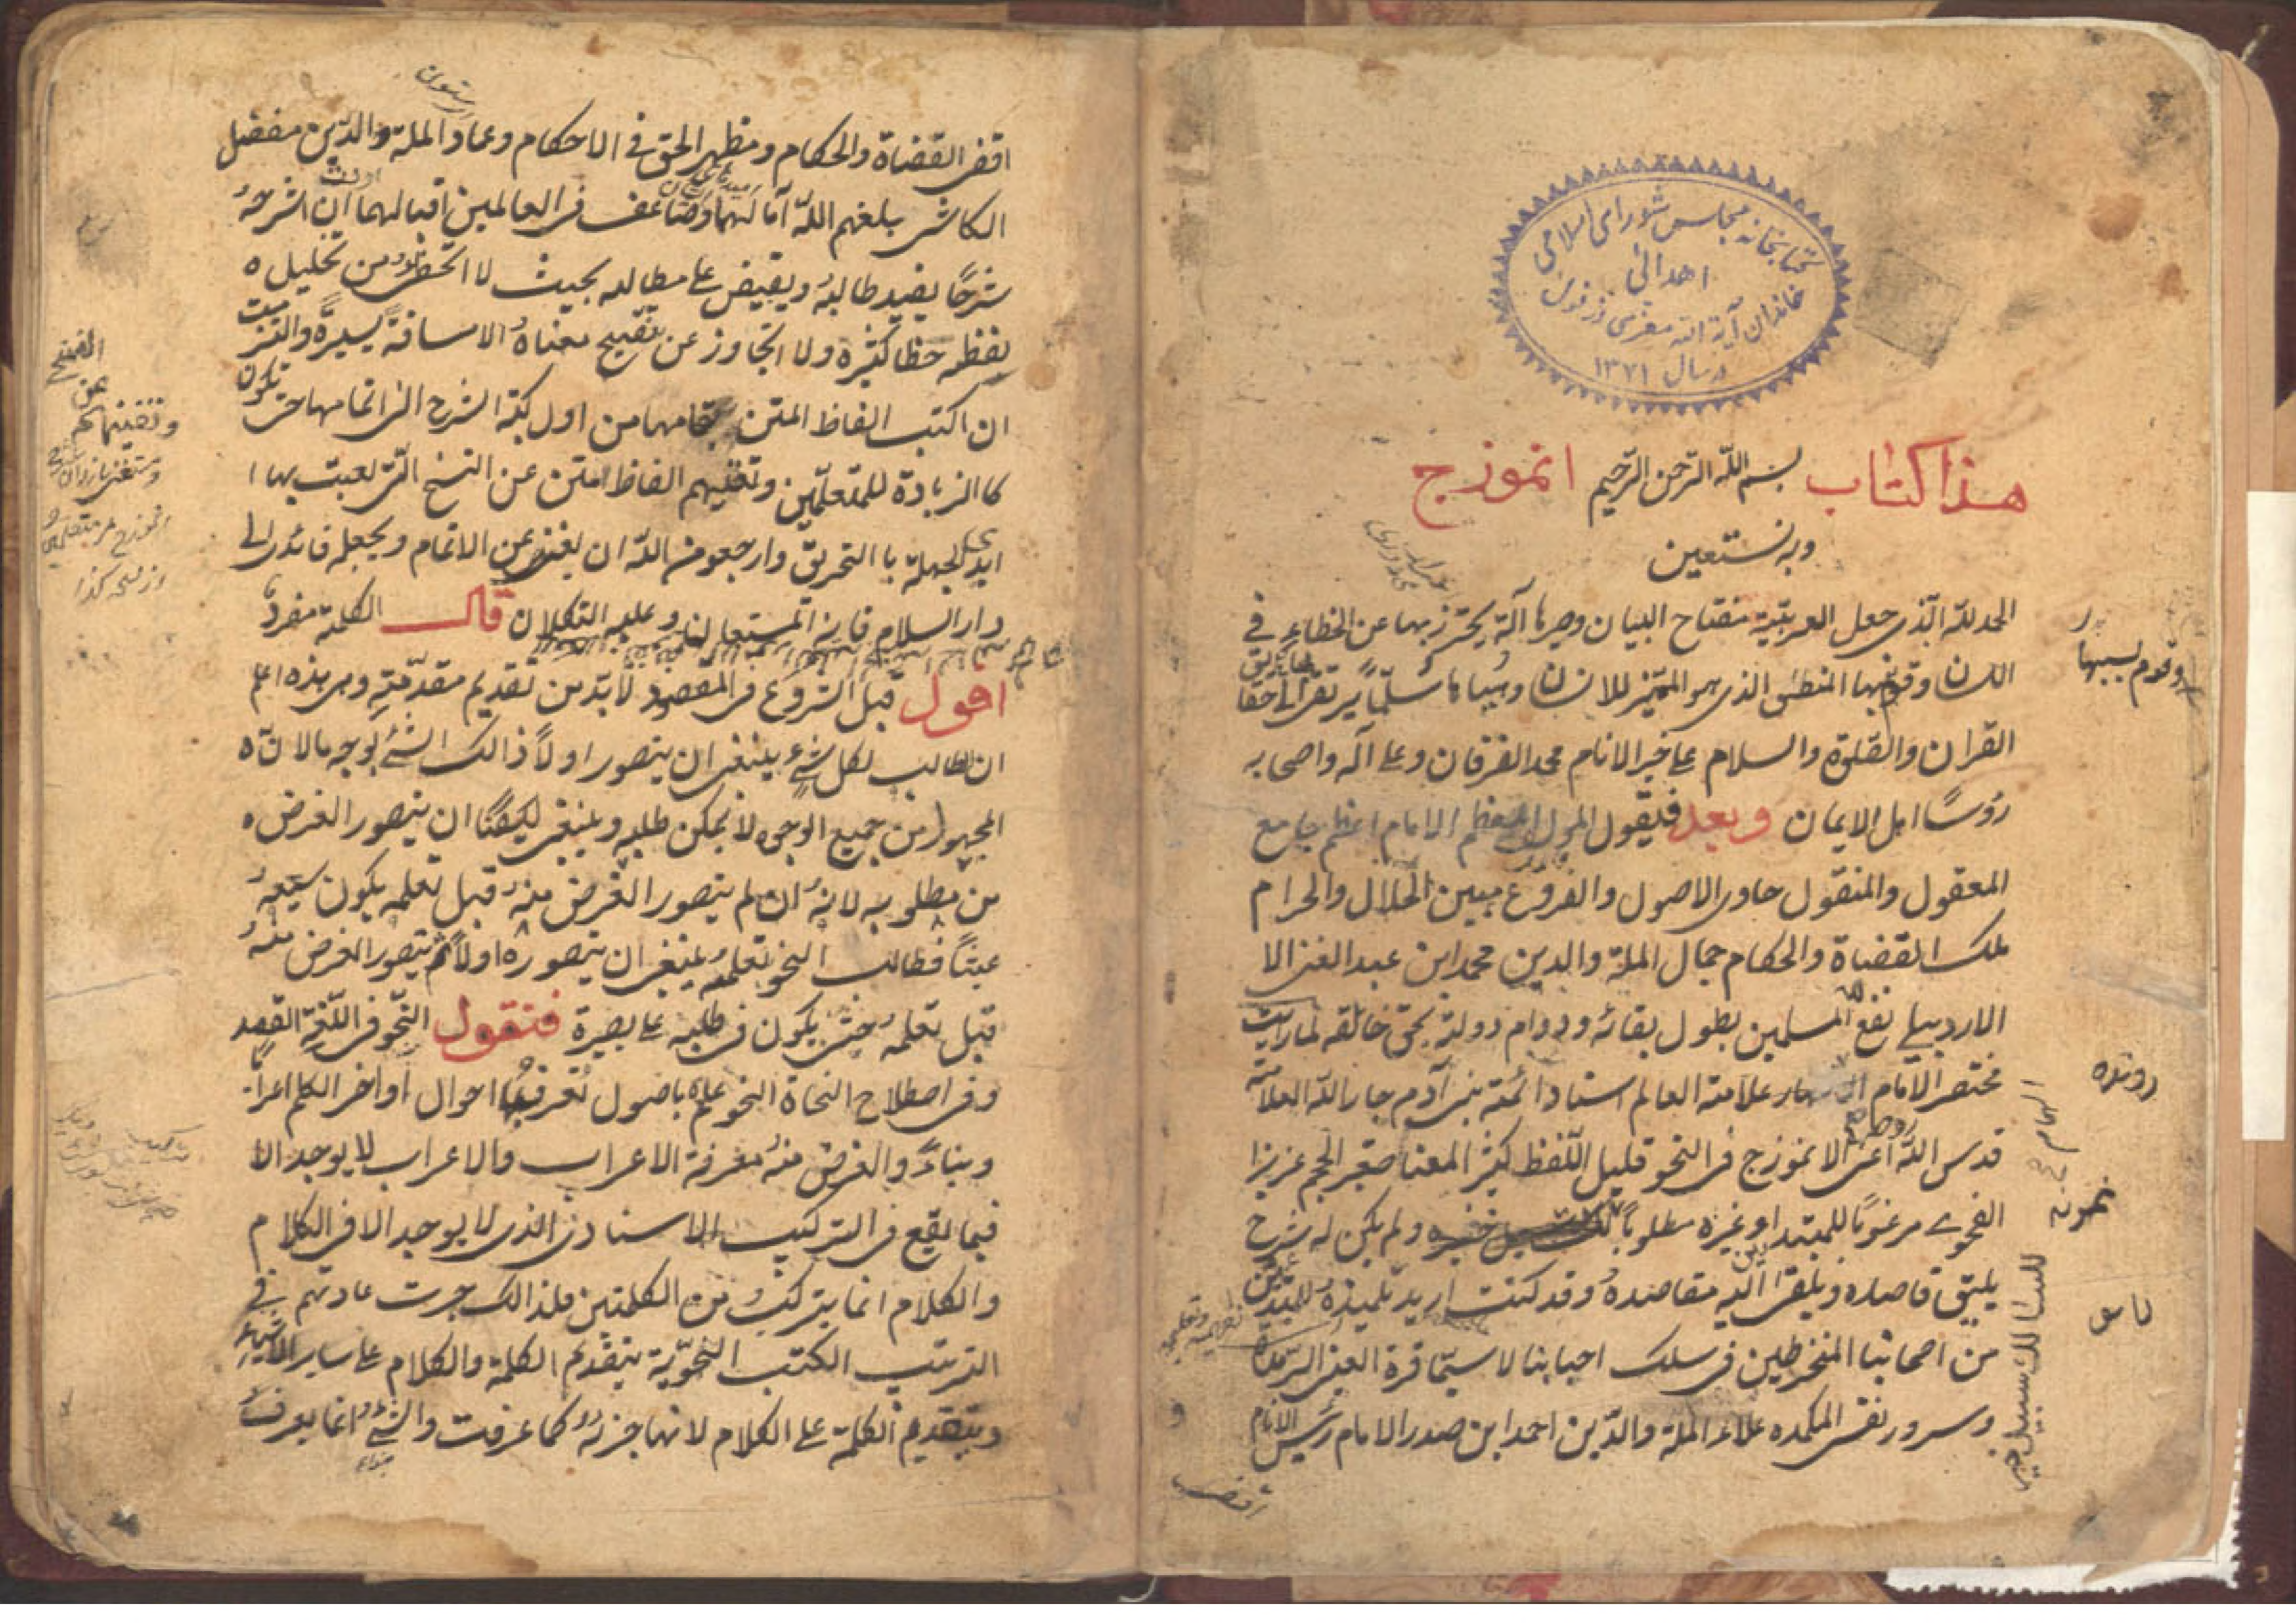 كتابخانه مجلس شورای اسلامی
اهدائی
خاندان آية الله معزی دزفول
در سال ۱۳۷۱
هذا كتاب بسم الله الرحمن الرحيم انموزج
وبه نستعين
الحمد لله الذى جعل العربية مفتاح البيان وصيرها آلة يحترز بها عن الخطاء فى
اللسان وقوم بها المنطق الذى هو المميز للانسان سلما يرتقى الى حقا
القران والصلوة والسلام على خير الانام محمد الفرقان وعلى آله واصحابه
رؤسا اهل الايمان وبعد فليقول المولى المعظم الامام اعظم جامع
المعقول والمنقول حاوى الاصول والفروع مبين الحلال والحرام
ملك القضاة والحكام جمال الملة والدين محمد ابن عبد الغنى الا
الاردبيلى نفع المسلمين بطول بقائه ودوام دولته بحق خالقه لما رايت
مختصر الامام علامة العالم استاد ائمة بنى آدم جار الله العلامة
قدس الله اعنى الانموزج فى النحو قليل اللفظ كثير المعنا صغير الحجم عزيزا
الفحوى مرغوبا للمبتدا وغيره مطلوبا ولم يكن له شرح
يليق قاصده ويلقى اليه مقاصده وقد كنت اريد تلميذه
من اصحابنا المنخرطين فى سلك احبابنا لا سيما قرة العين
وسرور نفس المكمده علاء الملة والدين احمد ابن صدر الامام رئيس الانام
وقوم بسببها
نمونه
للسالك سبيل خير
اقض
اقضى القضاة والحكام ومظهر الحق فى الاحكام وعماد الملة والدين مفضل
الكاشى بلغهم الله آمالهما وضاعف فى العالمين اقبالهما ان اشرحه
شرحا يفيد طالبه ويفيض على مطالبه بحيث لا من تحليل ه
لفظه حظا كثيره ولا اتجاوز عن تنقيح معناه الا مسافة يسيرة والتزمت
ان اكتب الفاظ المتن بتمامها من اول كتبة الشرح الى اتمامها حتى تكون
كالزيادة للمتعلمين الفاظ المتن عن النسخ التى لعبت بها ا
ايدى الجهلة با التحريق وارجعو من الله ان عن الاتمام ويجعله قائدى الى
دار السلام فانه المستعان وعليه التكلان قال الكلمة مفرد
اقول قبل الشروع فى المقصود لا بد من تقديم مقدمة وهى هذه اعلم
ان الطالب لكل شىء ينبغى ان يتصور اولا ذالك الشىء بوجه ما لان ه
المجهول من جميع الوجوه لا يمكن طلبه وينبغى ايضا ان يتصور الغرض ه
من مطلوبه لانه ان لم يتصور الغرض منه قبل تعلمه يكون سعيه
عبثا فطالب النحو ينبغى ان يتصوره اولا ثم يتصور الغرض منه
قبل تعلمه حتى يكون فى طلبه على بصيرة فنقول النحو فى اللغة القصد
وفى اصطلاح النحاة النحو علم باصول تعرف بها احوال اواخر الكلم اعرابا
وبناء والغرض منه معرفة الاعراب والاعراب لا يوجد الا
فيما يقع فى التركيب الاسنادى الذى لا يوجد الا فى الكلام
والكلام انما يتركب من الكلمتين فلذالك جرت عادتهم فى
الترتيب الكتب النحوية بتقديم الكلمة والكلام على ساير الاشياء
وبتقديم الكلمة على الكلام لانها جزئه كما عرفت والشىء انما يعرف